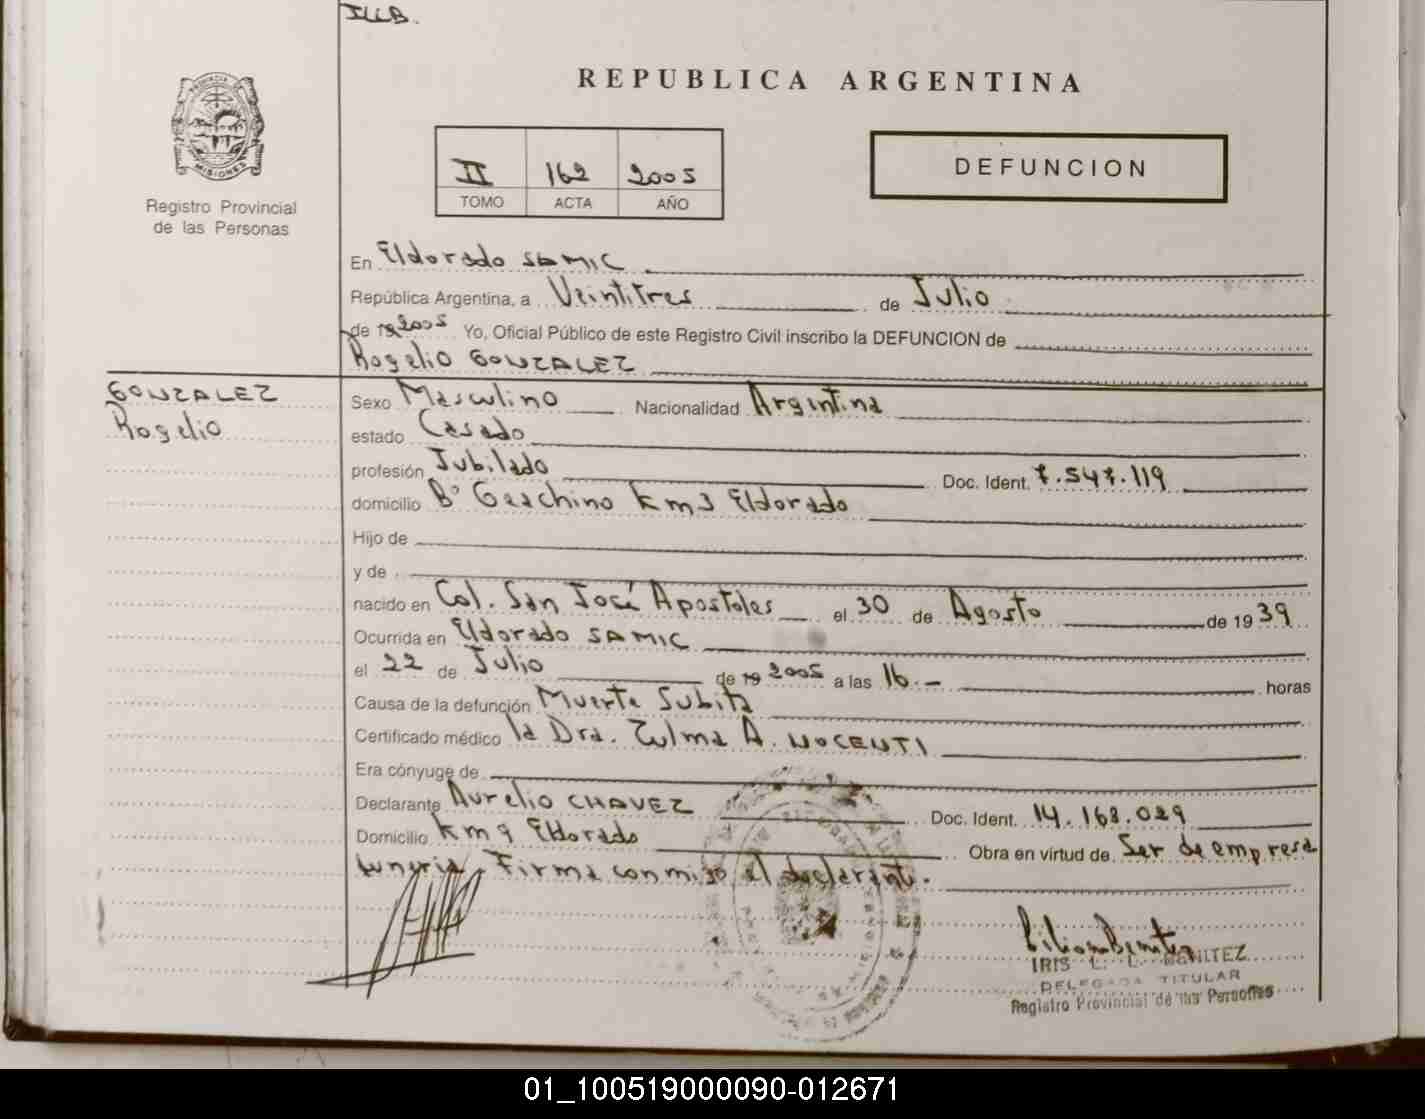 ILLB.
REPUBLICA ARGENTINA
PROVINCIA DE
MISIONES
Registro Provincial
de las Personas
II 162 2005
TOMO ACTA AÑO
DEFUNCION
En Eldorado SAMIC
República Argentina, a Veintitres de Julio
de 19 2005 Yo, Oficial Público de este Registro Civil inscribo la DEFUNCION de
Rogelio GONZALEZ
GONZALEZ
Rogelio
Sexo Masculino Nacionalidad Argentina
estado Casado
profesión Jubilado Doc. Ident. 7.547.119
domicilio Bº Km 3 Eldorado
Hijo de
y de
nacido en Col. San José Apostoles el 30 de Agosto de 19 39
Ocurrida en Eldorado SAMIC
el 22 de Julio de 19 2005 a las 16.- horas
Causa de la defunción Muerte Subita
Certificado médico la Dra. Zulma A. NOCENTI
Era cónyuge de
Declarante Aurelio CHAVEZ Doc. Ident. 14.168.029
Domicilio Km 9 Eldorado Obra en virtud de Ser de empresa
funeria. Firma conmigo el declarante.
IRIS L. L. BENITEZ
DELEGADA TITULAR
Registro Provincial de las Personas
01_100519000090-012671